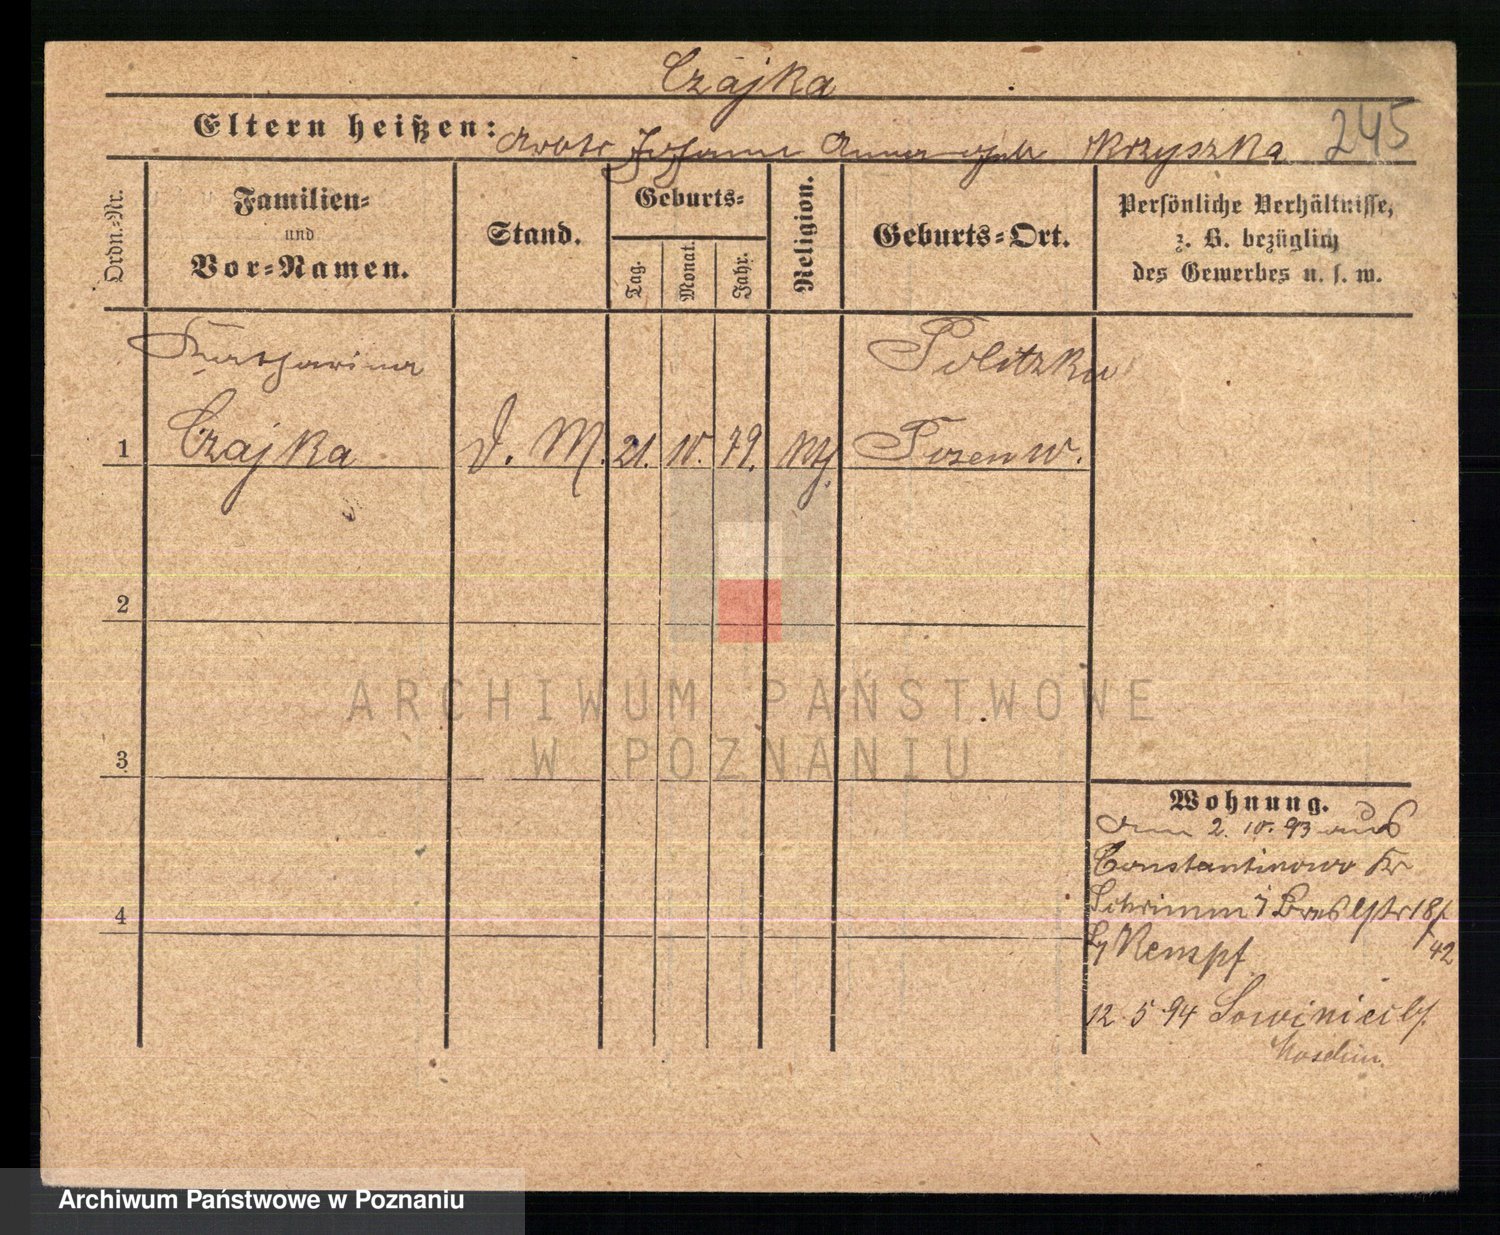 Czajka
Eltern heißen: Arbtr Johann Anna geb Krzyszka 245
Ordn.-Nr.
Familien-
und
Vor-Namen.
Stand.
Geburts-
Tag.
Monat.
Jahr.
Religion.
Geburts-Ort.
Persönliche Verhältnisse,
z. B. bezüglich
des Gewerbes u. s. w.
Katharina
Politzku
1 Czajka D. M. 21. 10. 79. Posen W.
2
3
4
Wohnung.
Am 2. 10. 93 aus
Constantinowo Kr
Schrimm Bresl Str 18/
Kempf 42
12 5 94 Sowiniec b/
Moschin.
ARCHIWUM PAŃSTWOWE
W POZNANIU
Archiwum Państwowe w Poznaniu